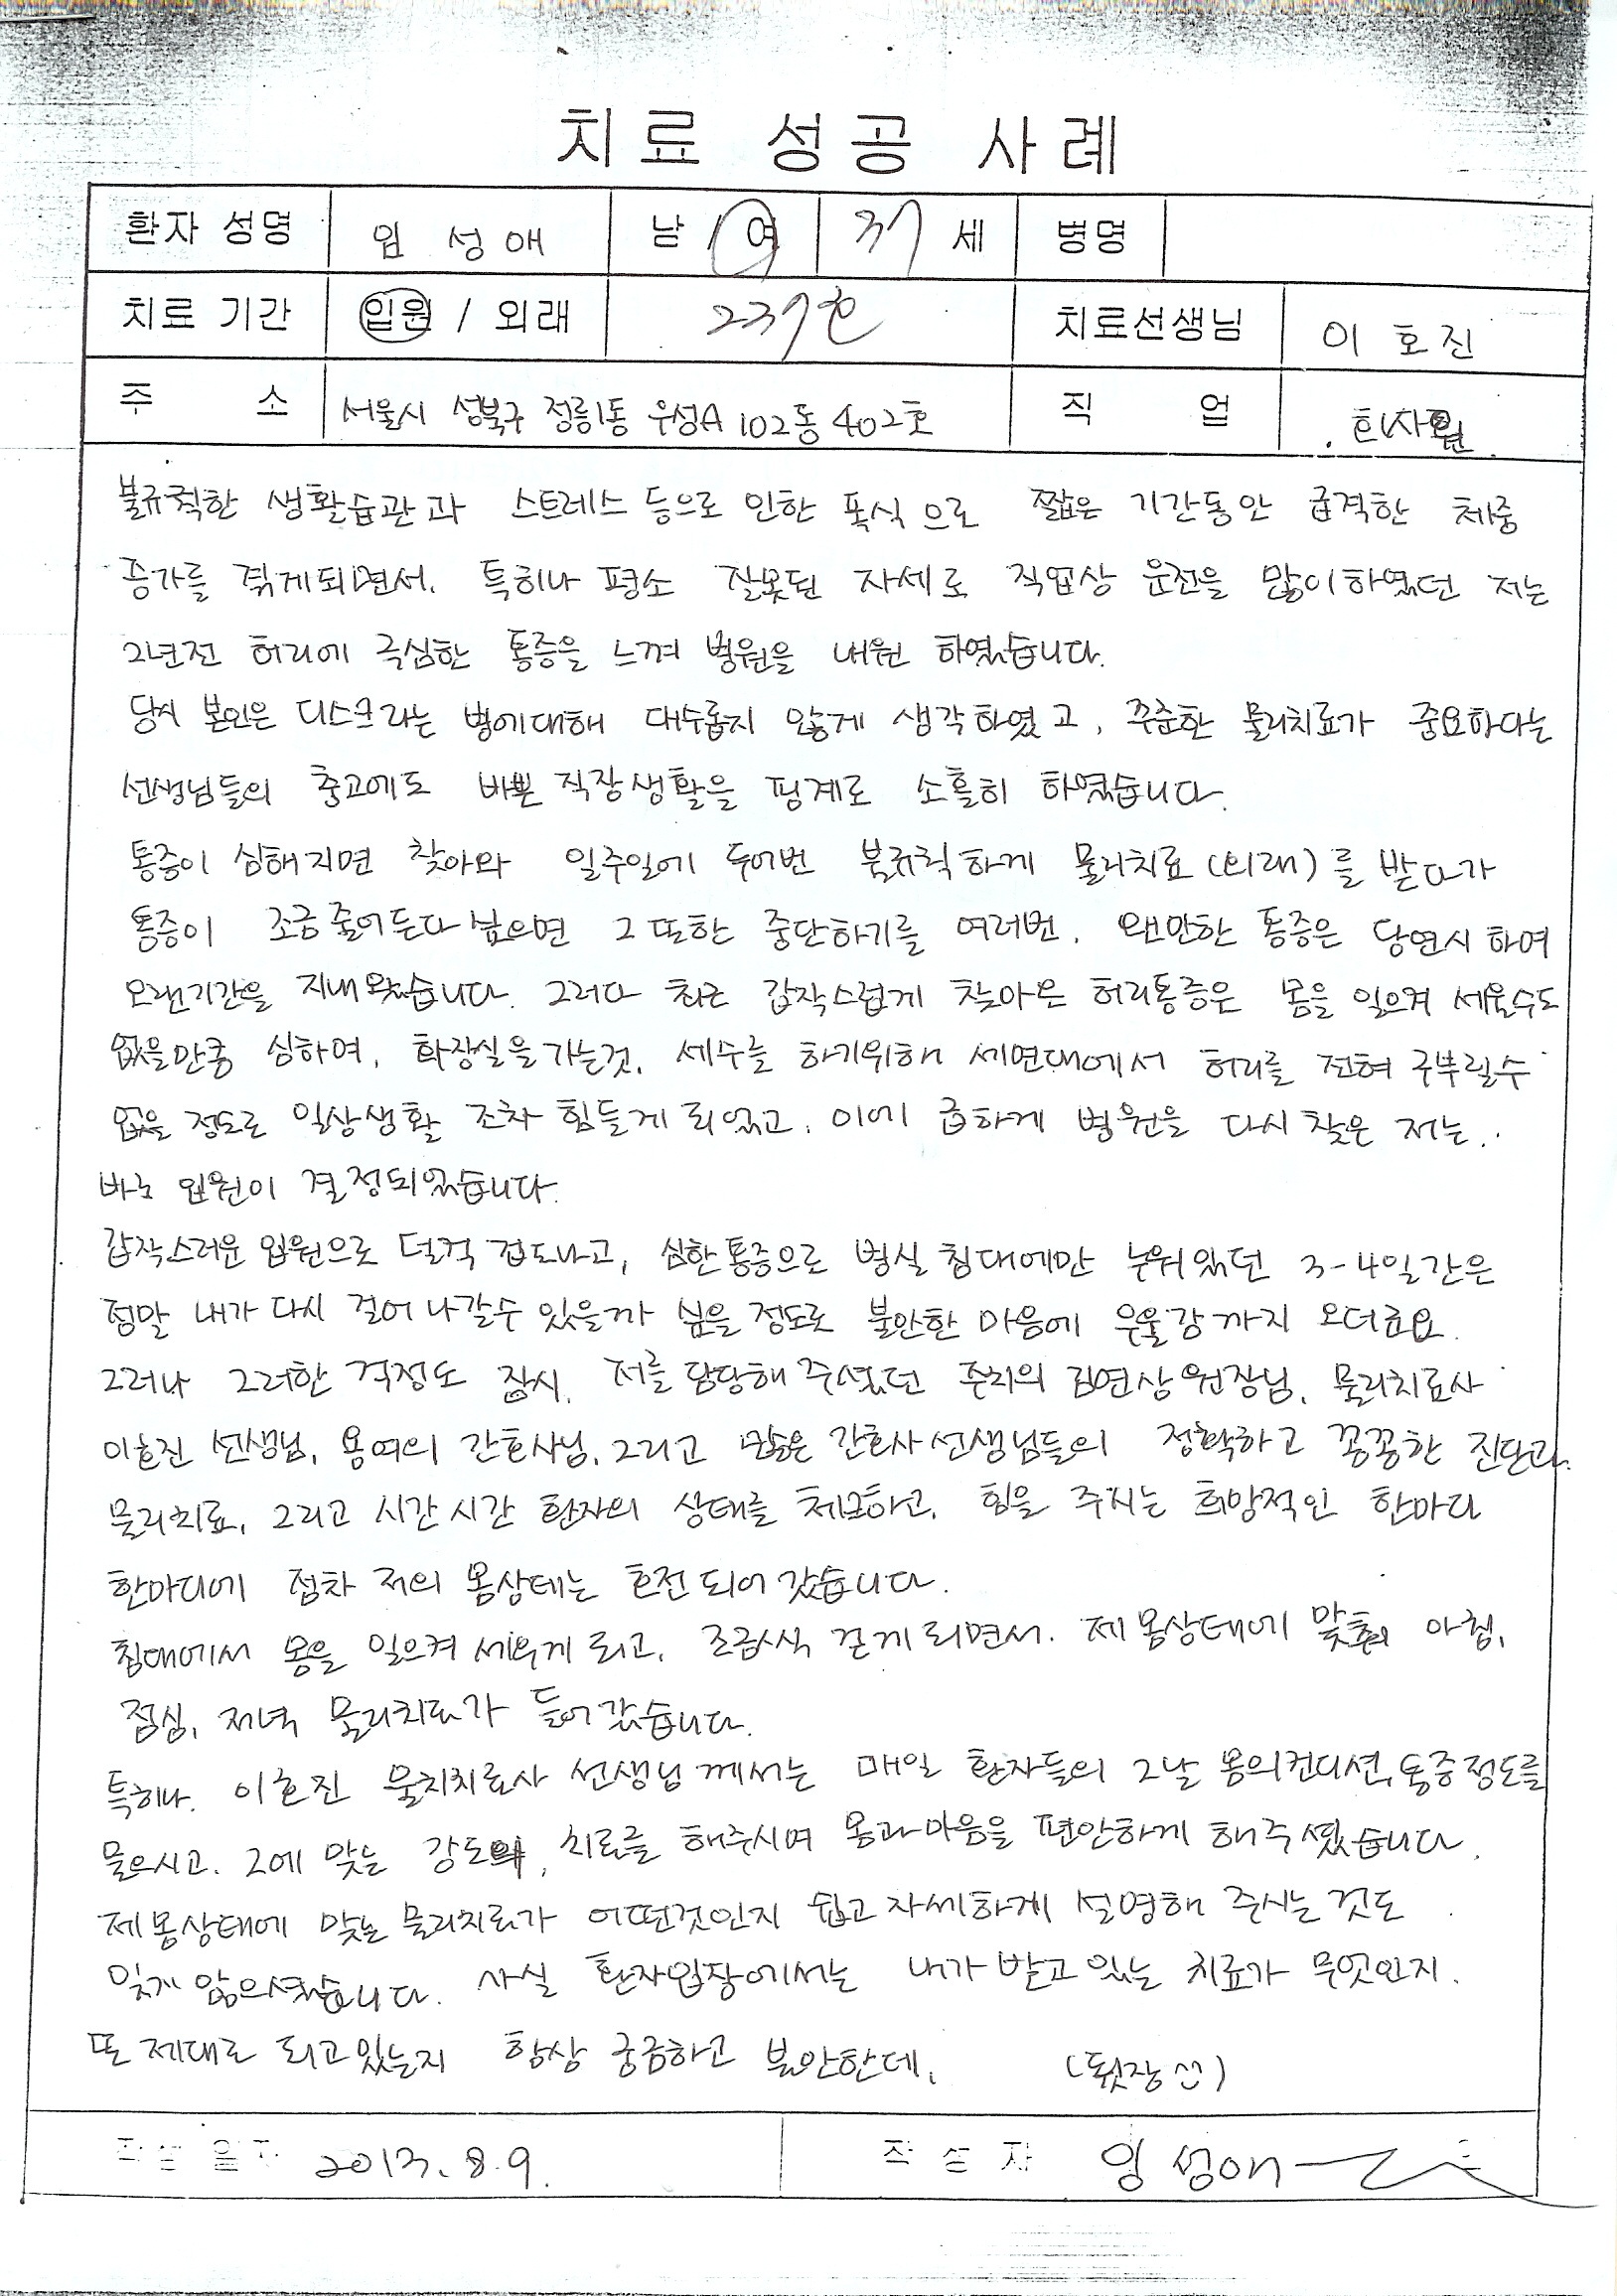 치료 성공 사례
환자 성명 임 성 애 남 / 여 37 세 병명
치료 기간 입원 / 외래 23 치료선생님 이 호 진
주 소 서울시 성북구 정릉1동 우성A 102동 402호 직 업 회사원
불규칙한 생활습관과 스트레스 등으로 인한 폭식으로 짧은 기간동안 급격한 체중
증가를 겪게되면서. 특히나 평소 잘못된 자세로 직업상 운전을 많이하였던 저는
2년전 허리에 극심한 통증을 느껴 병원을 내원 하였습니다.
당시 본인은 디스크라는 병에대해 대수롭지 않게 생각하였고, 꾸준한 물리치료가 중요하다는
선생님들의 충고에도 바쁜 직장생활을 핑계로 소홀히 하였습니다.
통증이 심해지면 찾아와 일주일에 두어번 불규칙하게 물리치료(외래)를 받다가
통증이 조금 줄어든다 싶으면 그 또한 중단하기를 여러번. 왠만한 통증은 당연시 하여
오랜기간을 지내왔습니다. 그러다 최근 갑작스럽게 찾아온 허리통증은 몸을 일으켜 세울수도
없을만큼 심하여, 화장실을가는것, 세수를 하기위해 세면대에서 허리를 전혀 구부릴수
없을 정도로 일상생활 조차 힘들게 되었고, 이에 급하게 병원을 다시 찾은 저는..
바로 입원이 결정되었습니다.
갑작스러운 입원으로 덜컥 겁도나고, 심한통증으로 병실 침대에만 누워있던 3-4일간은
정말 내가 다시 걸어 나갈수 있을까 싶을 정도로 불안한 마음에 우울감까지 오더군요.
그러나 그러한 걱정도 잠시, 저를 담당해 주셨던 주치의 김연상 원장님, 물리치료사
이호진 선생님, 용여의 간호사님, 그리고 많은 간호사 선생님들의 정확하고 꼼꼼한 진단과
물리치료, 그리고 시간시간 환자의 상태를 체크하고, 힘을 주시는 희망적인 한마디
한마디에 점차 저의 몸상태는 호전되어 갔습니다.
침대에서 몸을 일으켜 세우게 되고, 조금씩 걷게 되면서. 제 몸상태에 맞춰 아침,
점심, 저녁 물리치료가 들어갔습니다.
특히나. 이호진 물치치료사 선생님께서는 매일 환자들의 그날 몸의컨디션, 통증정도를
물으시고. 그에 맞는 강도의, 치료를 해주시며 몸과마음을 편안하게 해주셨습니다.
제몸상태에 맞는 물리치료가 어떤것인지 쉽고 자세하게 설명해 주시는 것도
잊지 않으셨습니다. 사실 환자입장에서는 내가 받고 있는 치료가 무엇인지.
또 제대로 되고있는지 항상 궁금하고 불안한데, (뒷장^^)
작성일자 2013. 8. 9. 작 성 자 임성애